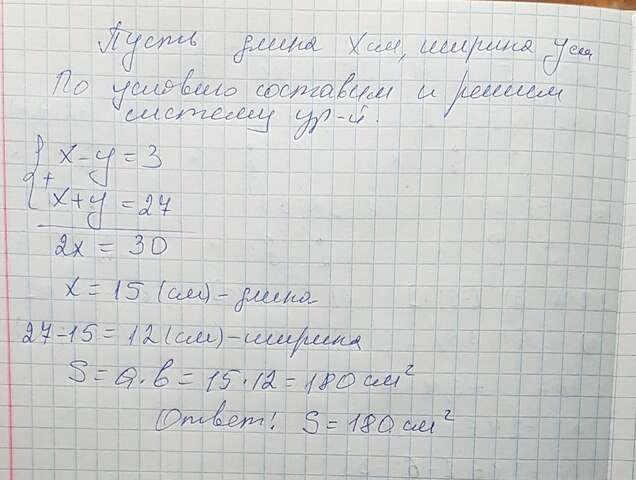 Пусть длина x см, ширина y см
По условию составим и решим
систему ур-й.
x - y = 3
+
x + y = 27
2x = 30
x = 15 (см) - длина
27 - 15 = 12 (см) - ширина
S = a · b = 15 · 12 = 180 см²
Ответ! S = 180 см²